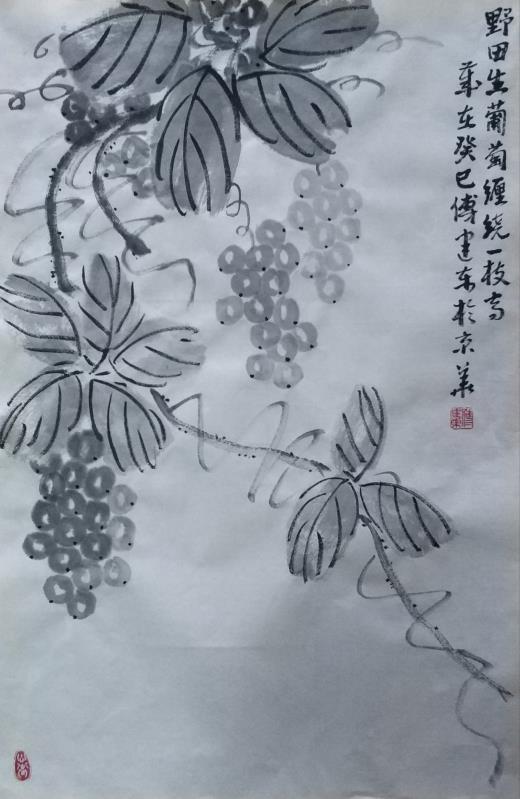 野田生葡萄缠绕一枝高
岁在癸巳傅建东於京华